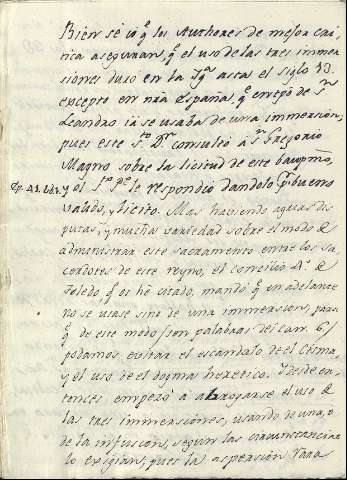 Bien sè io q.e los Authores de mejor cri-
tica aseguran, q.e el uso de las tres immer-
siones duro en la Ig.a asta el siglo 13.
excepto en nra España, q.e en tpõ de S.n
Leandro ia se usaba de una immersion,
pues este S.to D.r consultó a S.n Gregorio
Magno sobre la licitud de este baupmo,
Ep. 41. Lib. 1. y el S.to P.e le respondio dandolo p.r bueno
valido, y licito. Mas haviendo agrias dis
putas, y mucha variedad sobre el modo de
administrar este sacramento entre los sa-
cerdotes de este reyno, el concilio 4.o de
Toledo, q.e os hè citado, mandó q.e en adelante
no se usase sino de una immersion, para
q.e de este modo (son palabras del Can. 6)
podamos evitar el escandalo de el Cisma,
y el uso de el dogma heretico. Y desde en-
tonses empezó a abrogarse el uso de
las tres immersiones, usando de una, o
de la infusion, segun las circunstancias
lo exigian, pues la aspersion rara